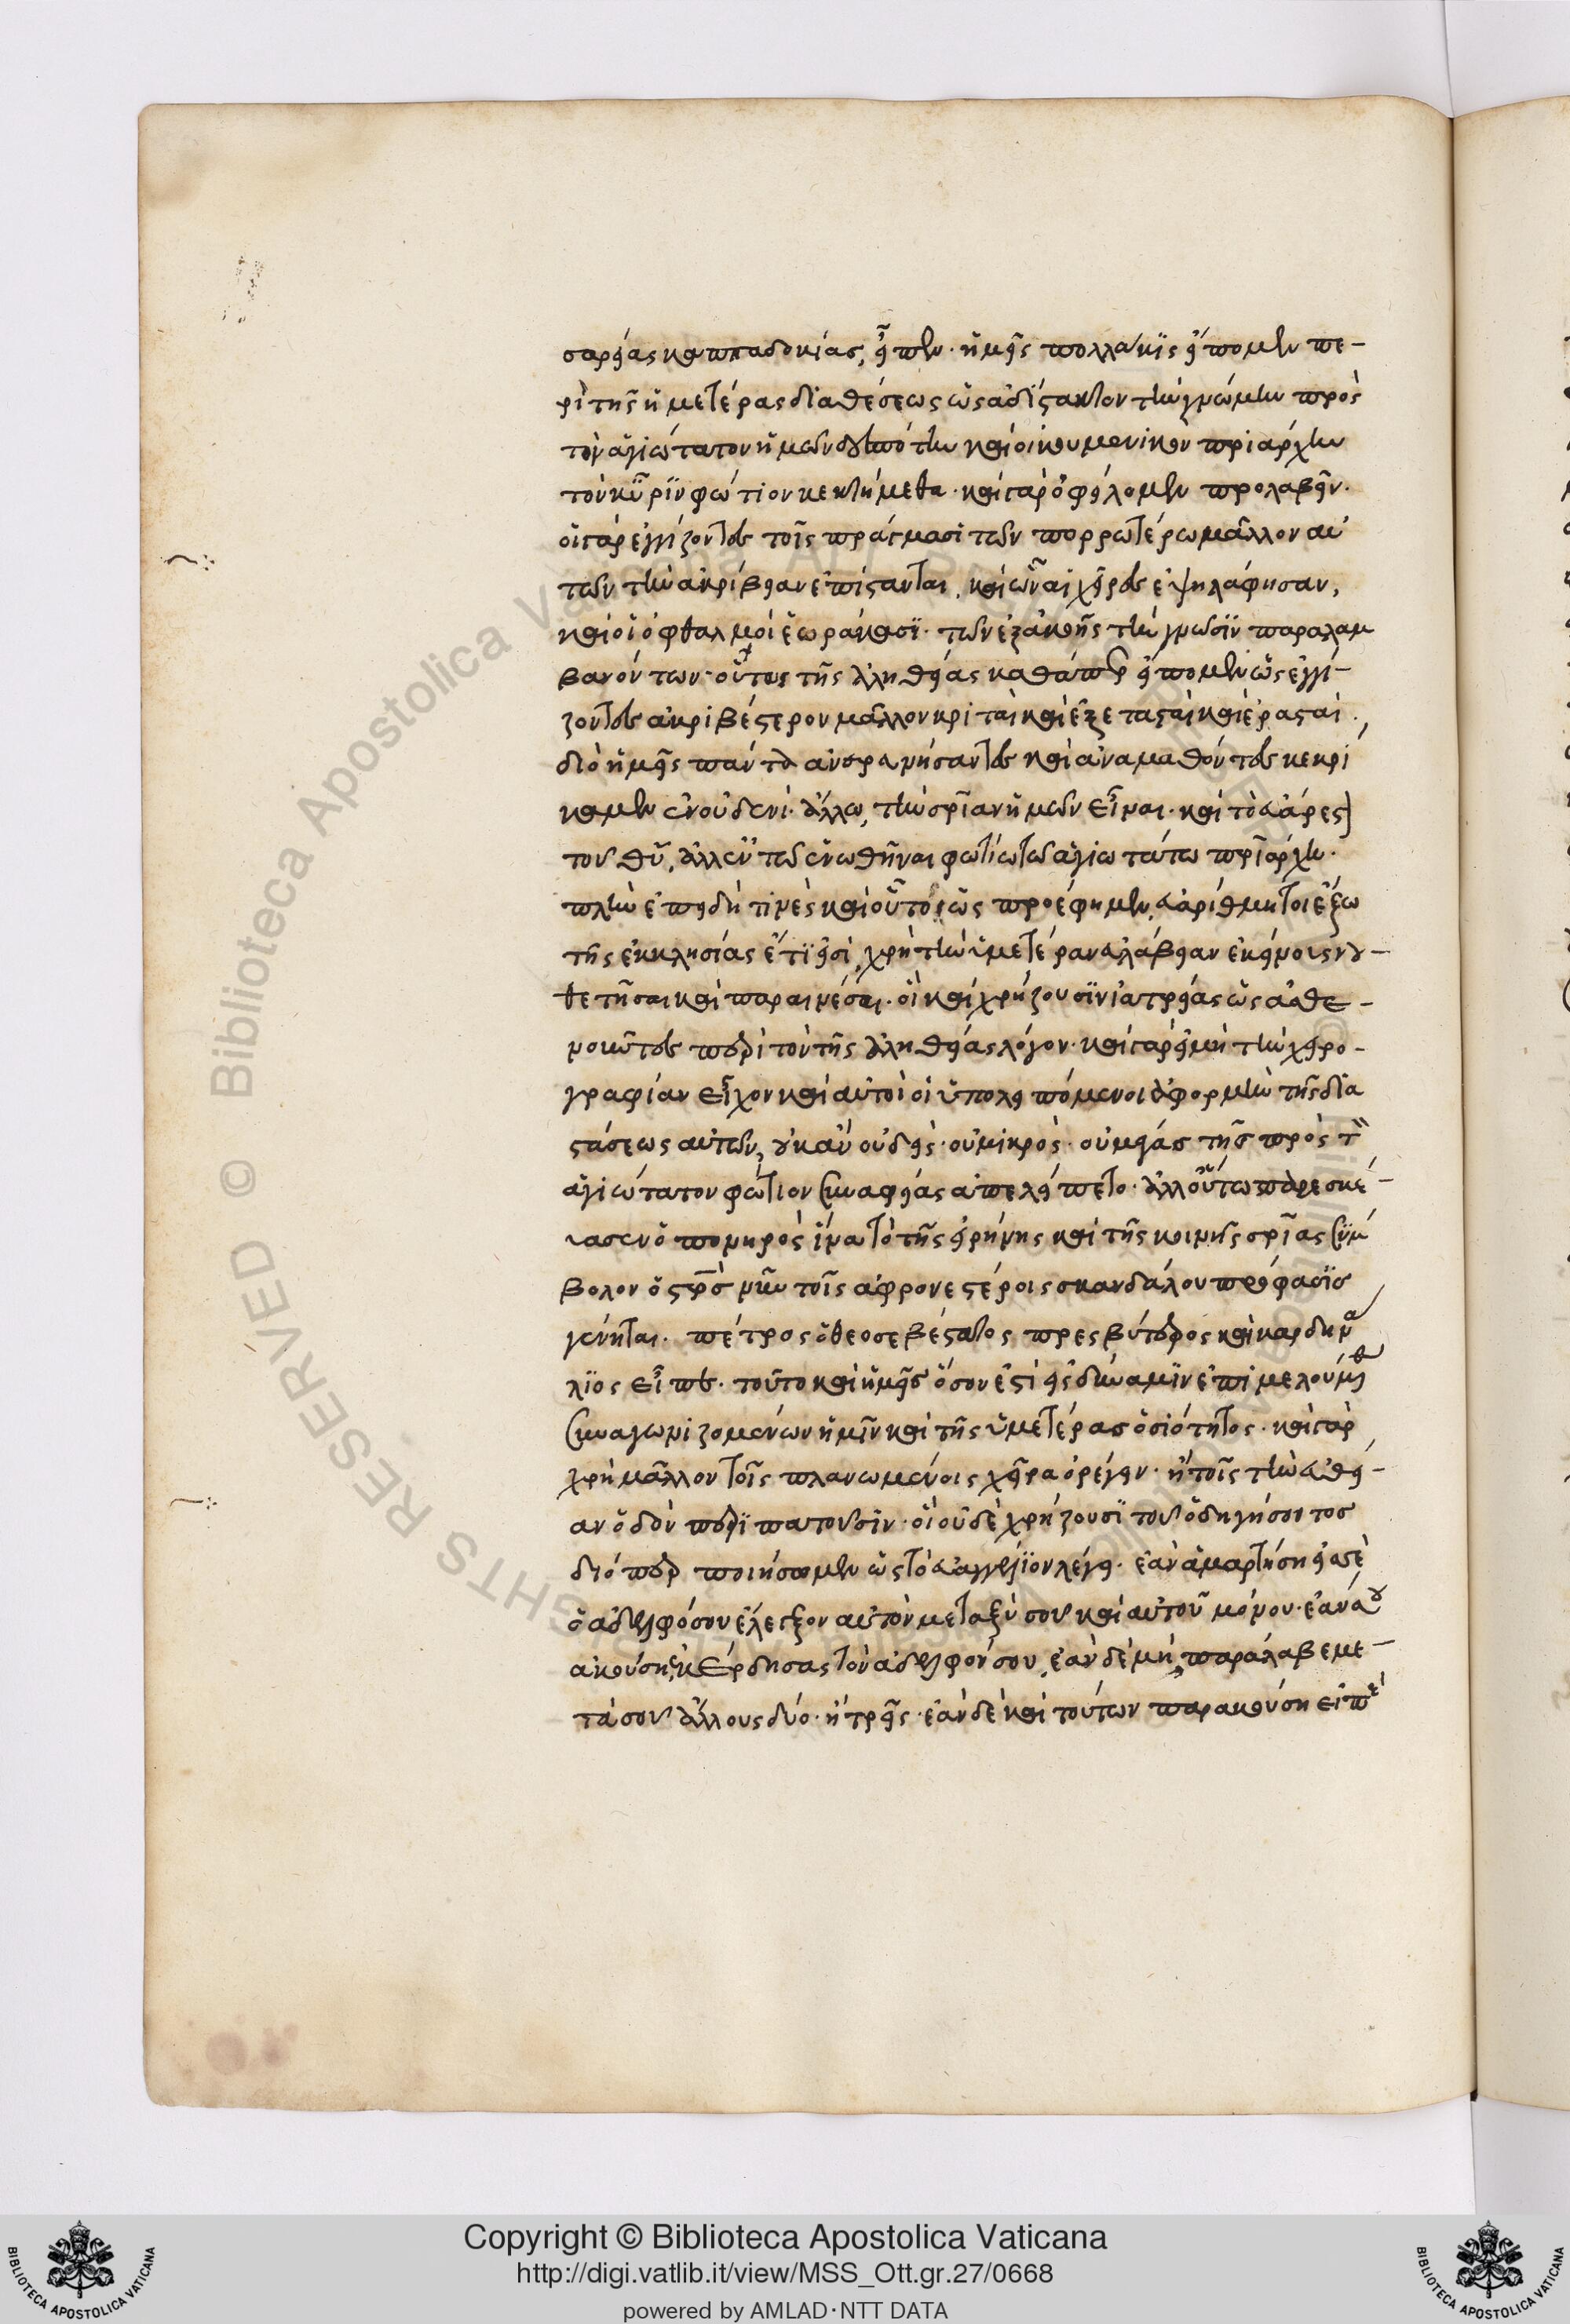 σαρείας καππαδοκίας, εἶπεν· ἡμεῖς πολλάκις εἴπομεν πε-
ρὶ τῆς ἡμετέρας διαθέσεως ὡς ἀδίστακτον τὴν γνώμην πρὸς
τὸν ἁγιώτατον ἡμῶν δεσπότην καὶ οἰκουμενικὸν πριάρχην
τὸν κῦριν φώτιον κεκτήμεθα· καὶ γὰρ ὀφείλομεν προλαβεῖν·
οἱ γὰρ ἐγγίζοντες τοῖς πράγμασι τῶν πορρωτέρω μᾶλλον αὐ
τῶν τὴν ἀκρίβειαν ἐπίστανται, καὶ ὧν αἱ χεῖρες ἐψηλάφησαν,
καὶ οἱ ὀφθαλμοὶ ἑωράκασι· τῶν ἐξ ἀκοῆς τὴν γνῶσιν παραλαμ
βανόντων· οὗτοι τῆς ἀληθείας καθάπερ εἴπομεν ὡς ἐγγί-
ζοντες ἀκριβέστερον μᾶλλον κριταὶ καὶ ἐξετασταὶ καὶ ἐρασταί.
διὸ ἡμεῖς πάντα ἀνερευνήσαντες καὶ ἀναμαθόντες κεκρί
καμεν ἐν οὐδενὶ ἄλλω, τὴν σρίαν ἡμῶν εἶναι· καὶ τὸ εὐάρεστ
τοῦ θυ, ἀλλ' ἐν τῶ ἑνωθῆναι φωτίω τῶ ἁγίω τούτω πριάρχη·
πλὴν ἐπειδή τινες καὶ οὗτοι ὡς προέφημεν, εὐαρίθμητοι ἔξω
τῆς ἐκκλησίας ἔτι εἰσὶ, χρὴ τὴν ὑμετέραν εὐλάβειαν ἐκείνοις νου-
θετῆσαι καὶ παραινέσαι· οἳ καὶ χρήζουσιν ἰατρείας ὡς ἀσθε-
νοῦντες περὶ τὸν τῆς ἀληθείας λόγον· καὶ γὰρ εἰ μὴ τὴν χειρο-
γραφίαν εἶχον καὶ αὐτοὶ οἱ ὑπολειπόμενοι ἀφορμὴν τῆς δια
στάσεως αὐτῶν, οὐκ ἂν οὐδεὶς· οὐ μικρὸς· οὐ μέγας τῆς πρὸς τ
ἁγιώτατον φώτιον συναφείας ἀπελείπετο· ἀλλ' οὕτω παρεσκέ-
υασεν ὁ πονηρὸς ἵνα τὸ τῆς εἰρήνης καὶ τῆς κοινῆς σρίας σύμ
βολον ὁ σρς νῦν τοῖς ἀφρονεστέροις σκανδάλου πρόφασις
γένηται. πέτρος ὁ θεοσεβέστατος πρεσβύτερος καὶ καρδηνά
λιος εἶπε· τοῦτο καὶ ἡμεῖς ὅσον ἐστὶ εἰς δύναμιν ἐπιμελούμεθ
συναγωνιζομένων ἡμῖν καὶ τῆς ὑμετέρας ὁσιότητος· καὶ γὰρ
χρὴ μᾶλλον τοῖς πλανωμένοις χεῖρα ὀρέγειν· ἢ τοῖς τὴν εὐθεῖ-
αν ὁδὸν περιπατοῦσιν· οἳ οὐδὲ χρήζουσι τοῦ ὁδηγήσοντος
διόπερ ποιήσωμεν ὡς τὸ εὐαγγέλιον λέγει· ἐὰν ἁμαρτήση εἰς σὲ
ὁ ἀδελφός σου ἔλεγξον αὐτὸν μεταξύ σου καὶ αὐτοῦ μόνου· ἐάν σου
ἀκούση, ἐκέρδησας τὸν ἀδελφόν σου, ἐὰν δὲ μὴ, παράλαβε με-
τὰ σοῦ ἄλλους δύο· ἢ τρεῖς· ἐὰν δὲ καὶ τούτων παρακούση εἰπὲ
Copyright © Biblioteca Apostolica Vaticana
http://digi.vatlib.it/view/MSS_Ott.gr.27/0668
powered by AMLAD·NTT DATA